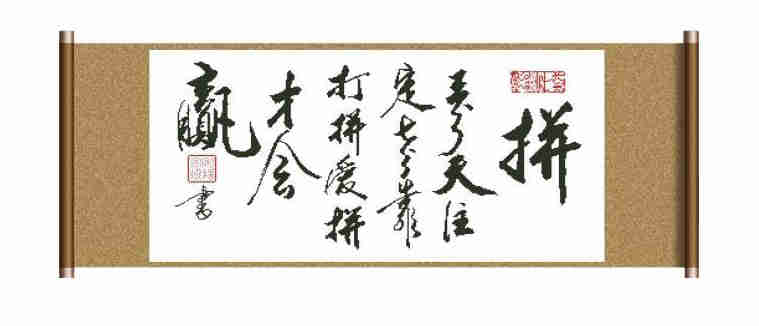 拼
叁分天注
定七分靠
打拼爱拼
才会
赢
书